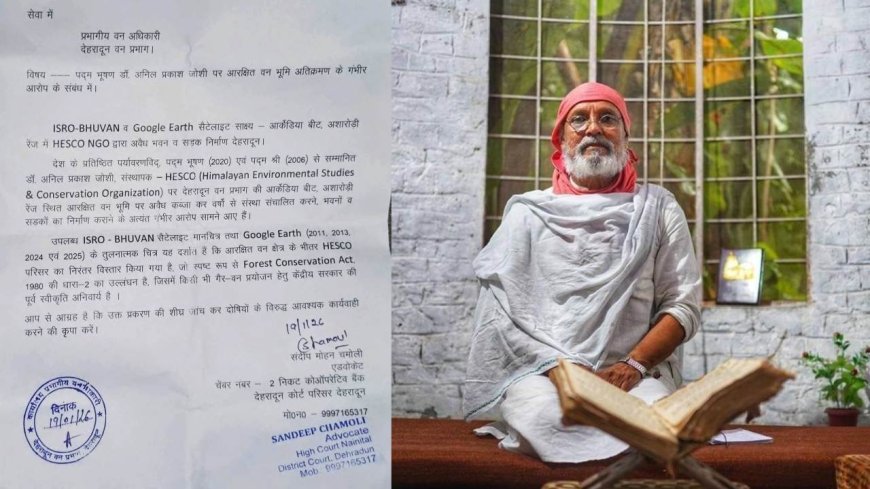 सेवा में
प्रभागीय वन अधिकारी
देहरादून वन प्रभाग।
विषय --- पद्म भूषण डॉ. अनिल प्रकाश जोशी पर आरक्षित वन भूमि अतिक्रमण के गंभीर
आरोप के संबंध में।
ISRO-BHUVAN व Google Earth सैटेलाइट साक्ष्य – आर्केडिया बीट, अशारोड़ी
रेंज में HESCO NGO द्वारा अवैध भवन व सड़क निर्माण देहरादून।
देश के प्रतिष्ठित पर्यावरणविद्, पद्म भूषण (2020) एवं पद्म श्री (2006) से सम्मानित
डॉ. अनिल प्रकाश जोशी, संस्थापक – HESCO (Himalayan Environmental Studies
& Conservation Organization) पर देहरादून वन प्रभाग की आर्केडिया बीट, अशारोड़ी
रेंज स्थित आरक्षित वन भूमि पर अवैध कब्जा कर वर्षों से संस्था संचालित करने, भवनों व
सड़कों का निर्माण कराने के अत्यंत गंभीर आरोप सामने आए हैं।
उपलब्ध ISRO - BHUVAN सैटेलाइट मानचित्र तथा Google Earth (2011, 2013,
2024 एवं 2025) के तुलनात्मक चित्र यह दर्शाते हैं कि आरक्षित वन क्षेत्र के भीतर HESCO
परिसर का निरंतर विस्तार किया गया है, जो स्पष्ट रूप से Forest Conservation Act,
1980 की धारा-2 का उल्लंघन है, जिसमें किसी भी गैर-वन प्रयोजन हेतु केंद्रीय सरकार की
पूर्व स्वीकृति अनिवार्य है ।
आप से आग्रह है कि उक्त प्रकरण की शीघ्र जांच कर दोषियों के विरुद्ध आवश्यक कार्यवाही
करने की कृपा करें।
19/1/26
Chamoli
संदीप मोहन चमोली
एडवोकेट
चेंबर नबर – 2 निकट कोऑपरेटिव बैंक
देहरादून कोर्ट परिसर देहरादून
मो0न0 – 9997165317
SANDEEP CHAMOLI
Advocate
High Court Nainital
District Court, Dehradun
Mob: 9997165317
कार्यालय प्रभागीय वनाधिकारी
दिनांक
19/01/26
देहरादून वन प्रभाग, देहरादून